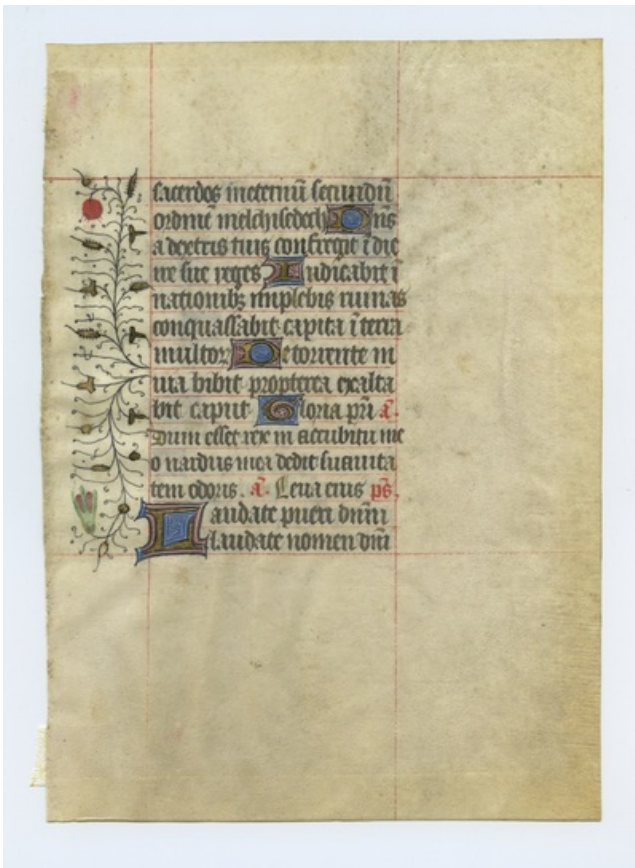 sacerdos ineternū secundū
ordinē melchisedech Dns
a dextris tuis confregit ī die
ire sue reges Iudicabit ī
nationibꝫ implebis ruinas
conquassabit capita ī terra
multoꝝ De torrente in
uia bibit propterea exalta
bit caput Gloria pri a.
Dum esset rex in accubitu me
o nardus mea dedit suauita
tem odoris. a. Leua eius ps.
Laudate pueri dnm
laudate nomen dni